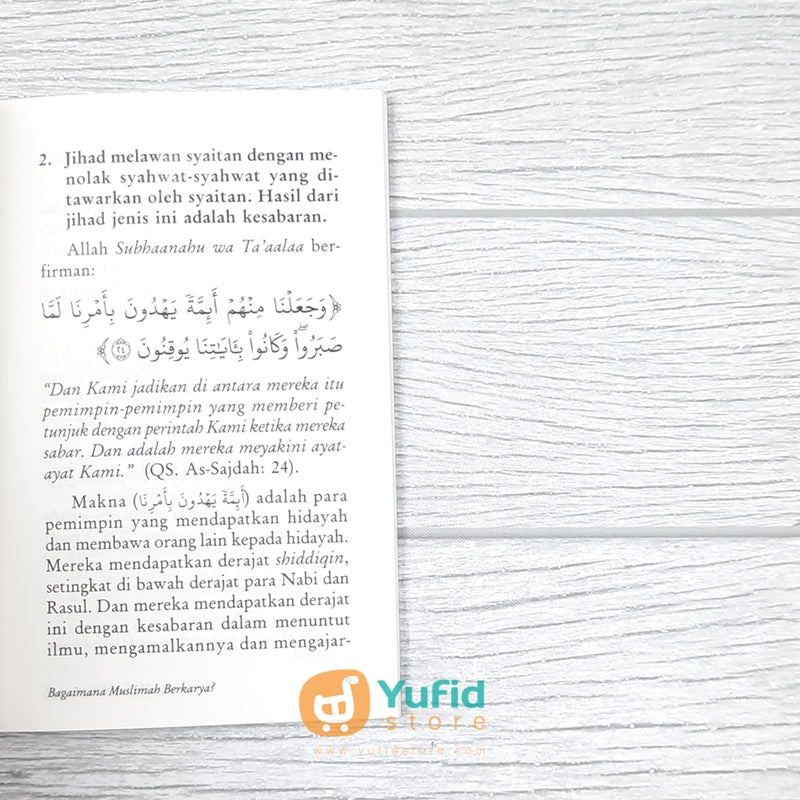 2. Jihad melawan syaitan dengan me-
nolak syahwat-syahwat yang di-
tawarkan oleh syaitan. Hasil dari
jihad jenis ini adalah kesabaran.
Allah Subhaanahu wa Ta'aalaa ber-
firman:
﴿وَجَعَلْنَا مِنْهُمْ أَئِمَّةً يَهْدُونَ بِأَمْرِنَا لَمَّا
صَبَرُوا۟ ۖ وَكَانُوا۟ بِـَٔايَـٰتِنَا يُوقِنُونَ ٢٤﴾
"Dan Kami jadikan di antara mereka itu
pemimpin-pemimpin yang memberi pe-
tunjuk dengan perintah Kami ketika mereka
sabar. Dan adalah mereka meyakini ayat-
ayat Kami." (QS. As-Sajdah: 24).
Makna (أَئِمَّةً يَهْدُونَ بِأَمْرِنَا) adalah para
pemimpin yang mendapatkan hidayah
dan membawa orang lain kepada hidayah.
Mereka mendapatkan derajat shiddiqin,
setingkat di bawah derajat para Nabi dan
Rasul. Dan mereka mendapatkan derajat
ini dengan kesabaran dalam menuntut
ilmu, mengamalkannya dan mengajar-
Bagaimana Muslimah Berkarya?
Yufid
store
www.yufidstore.com